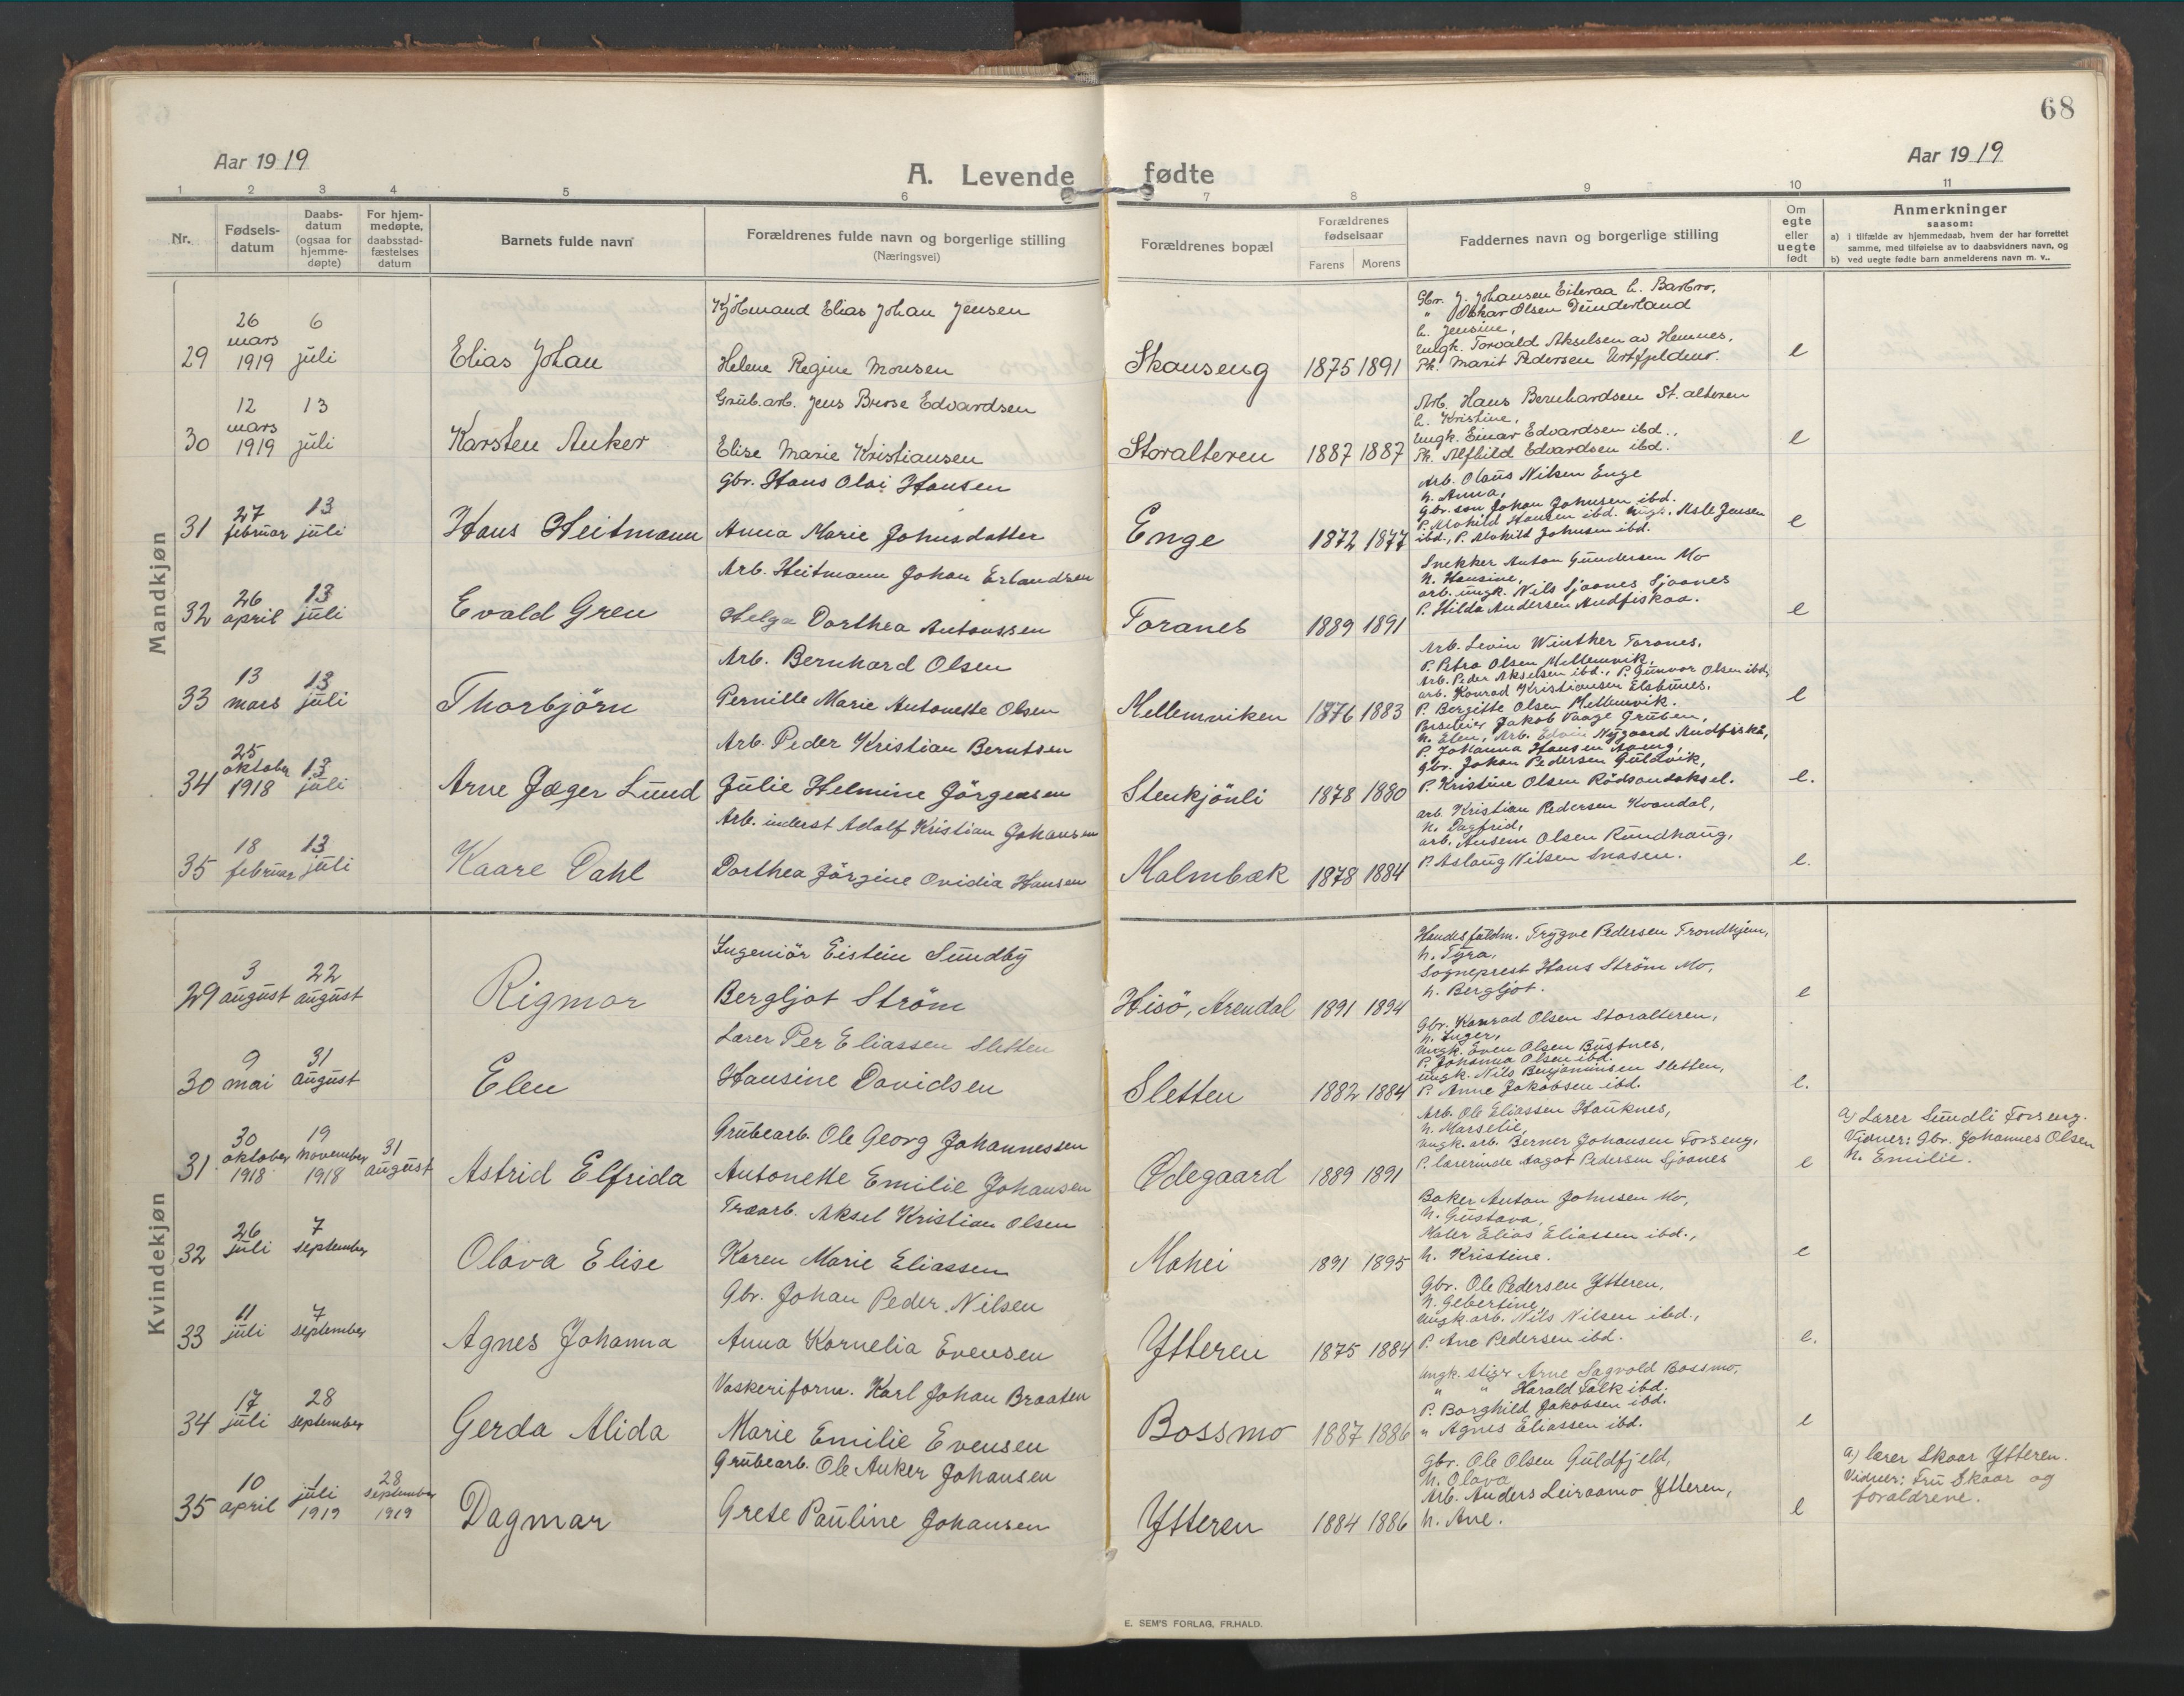 68
Aar 1919
A. Levende fødte
Aar 1919
1 2 3 4 5 6 7 8 9 10 11
Nr.
Fødsels-
datum
Daabs-
datum
(ogsaa for
hjemme-
døpte)
For hjem-
medøpte,
daabsstad-
fæstelses
datum
Barnets fulde navn
Forældrenes fulde navn og borgerlige stilling
(Næringsvei)
Forældrenes bopæl
Forældrenes
fødselsaar
Farens Morens
Faddernes navn og borgerlige stilling
Om
egte
eller
uegte
født
Anmerkninger
saasom:
a) i tilfælde av hjemmedaab, hvem der har forrettet
samme, med tilføielse av to daabsvidners navn, og
b) ved uegte fødte barn anmelderens navn m. v..
Mandkjøn
29
26
mars
1919
6
juli
Elias Johan
Kjöbmand Elias Johan Jensen
Helene Regine Monsen
Skauseng
1875 1891
Gbr. J. Johansen Eiteraa h. Barbro,
" Oskar Olsen Dunderland
h. Jensine,
Ungk. Torvald Akselsen av Hemnes,
Pk. Marit Pedersen Urtfjeldmo.
e
30
12
mars
1919
13
juli
Karsten Anker
Grub.arb. Jens Brose Edvardsen
Elise Marie Kristiansen
Storalteren
1887 1887
Arb. Hans Bernhardsen St.alteren
h. Kristine,
Ungk. Einar Edvardsen ibd.,
Pk. Alfhild Edvardsen ibd.
e
31
27
februar
13
juli
Hans Heitmann
Gbr. Hans Olai Hansen
Anna Marie Johnsdatter
Enge
1872 1877
Arb. Olaus Nilsen Enge
h. Anna,
Gbr. søn Johan Johnsen ibd.
P. Alohild Hansen ibd. Ungk. Asle Jensen
ibd., P. Alohild Johnsen ibd.
e
32
26
april
13
juli
Evald Gren
Arb. Heitmann Johan Erlandsen
Helga Dorthea Antonssen
Toranes
1889 1891
Snekker Anton Gundersen Mo
h. Hansine,
arb. ungk. Nils Sjaanes Sjaanes
P. Hilda Andersen Andfiskaa.
e
33
13
mars
13
juli
Thorbjörn
Arb. Bernhard Olsen
Pernille Marie Antonette Olsen
Mellemviken
1876 1883
Arb. Levin Winther Toranes,
P. Petra Olsen Mellemvik,
Arb. Peder Akselsen ibd., P. Gunvor Olsen ibd,
arb. Konrad Kristiansen
P. Bergitte Olsen Mellemvik.
e
34
25
oktober
1918
13
juli
Arne Jæger Lund
Arb. Peder Kristian Berntsen
Julie Helmine Jörgensen
Stenkjönli
1878 1880
Jakob Vaage Gruben,
h. Elen, Arb. Edvin Nygaard Andfiskå,
P. Johanna Hansen
gbr. Johan Pedersen Guldvik,
P. Kristine Olsen Rödsandaksel.
e.
35
18
februar
13
juli
Kaare Dahl
Arb. inderst Adolf Kristian Johansen
Dorthea Jörgine Ovidia Hansen
Malmbæk
1878 1884
arb. Kristian Pedersen Kvandal,
h. Dagfrid,
arb. Ansem Olsen Rundhaug,
P. Aslaug Nilsen Snasen.
e.
Kvindekjøn
29
3
august
22
august
Rigmor
Ingeniör Eistein Sundby
Bergljot Ström
Hisö, Arendal
1891 1894
Handelsfuldm. Trygve Pedersen Trondhjem,
h. Tyra,
Sogneprest Hans Ström Mo,
h. Bergljot.
e
30
9
mai
31
august
Elen
Lærer Per Eliassen Sletten
Hansine Davidsen
Sletten
1882 1884
Gbr. Konrad Olsen Storalteren,
h. Inger,
Ungk. Even Olsen Bustnes,
P. Johanna Olsen ibd.
ungk. Nils Benjaminsen Sletten,
P. Anne Jakobsen ibd.
e.
31
30
oktober
1918
19
november
1918
31
august
Astrid Elfrida
Grubearb. Ole Georg Johannessen
Antonette Emilie Johansen
Ødegaard
1889 1891
Arb. Ole Eliassen Hauknes,
h. Marselie,
Ungk. arb. Berner Johansen Forseng,
P. lærerinde Aagot Pedersen Sjaanes
e
a) Lærer Sundli Forseng.
Vidner: Gbr. Johannes Olsen
h. Emilie.
32
26
juli
7
september
Olava Elise
Træarb. Aksel Kristian Olsen
Karen Marie Eliassen
Mohei
1891 1895
Baker Anton Johnsen Mo,
h. Gustava,
Maler Elias Eliassen ibd.,
h. Kristine.
e
33
11
juli
7
september
Agnes Johanna
Gbr. Johan Peder Nilsen
Anna Kornelia Evensen
Ytteren
1875 1884
Gbr. Ole Pedersen Ytteren,
h. Gebertine,
Ungk. arb. Nils Nilsen ibd.,
P. Ane Pedersen ibd.
e.
34
17
juli
28
september
Gerda Alida
Vaskeriform. Karl Johan Braaten
Marie Emilie Evensen
Bossmo
1887 1886
Ungk. stigr Arne Sagvold Bossmo,
" " Harald Falk ibd.
P. Borghild Jakobsen ibd.
" Agnes Eliassen ibd.
e
35
10
april
1
juli
1919
28
september
1919
Dagmar
Grubearb. Ole Anker Johansen
Grete Pauline Johansen
Ytteren
1884 1886
Gbr. Ole Olsen Guldfjeld,
h. Olava
Arb. Anders Leiraamo Ytteren,
h. Ane.
e
a) lærer Skaar Ytteren.
Vidner: Fru Skaar og
forældrene.
E. SEM'S FORLAG, FR.HALD.